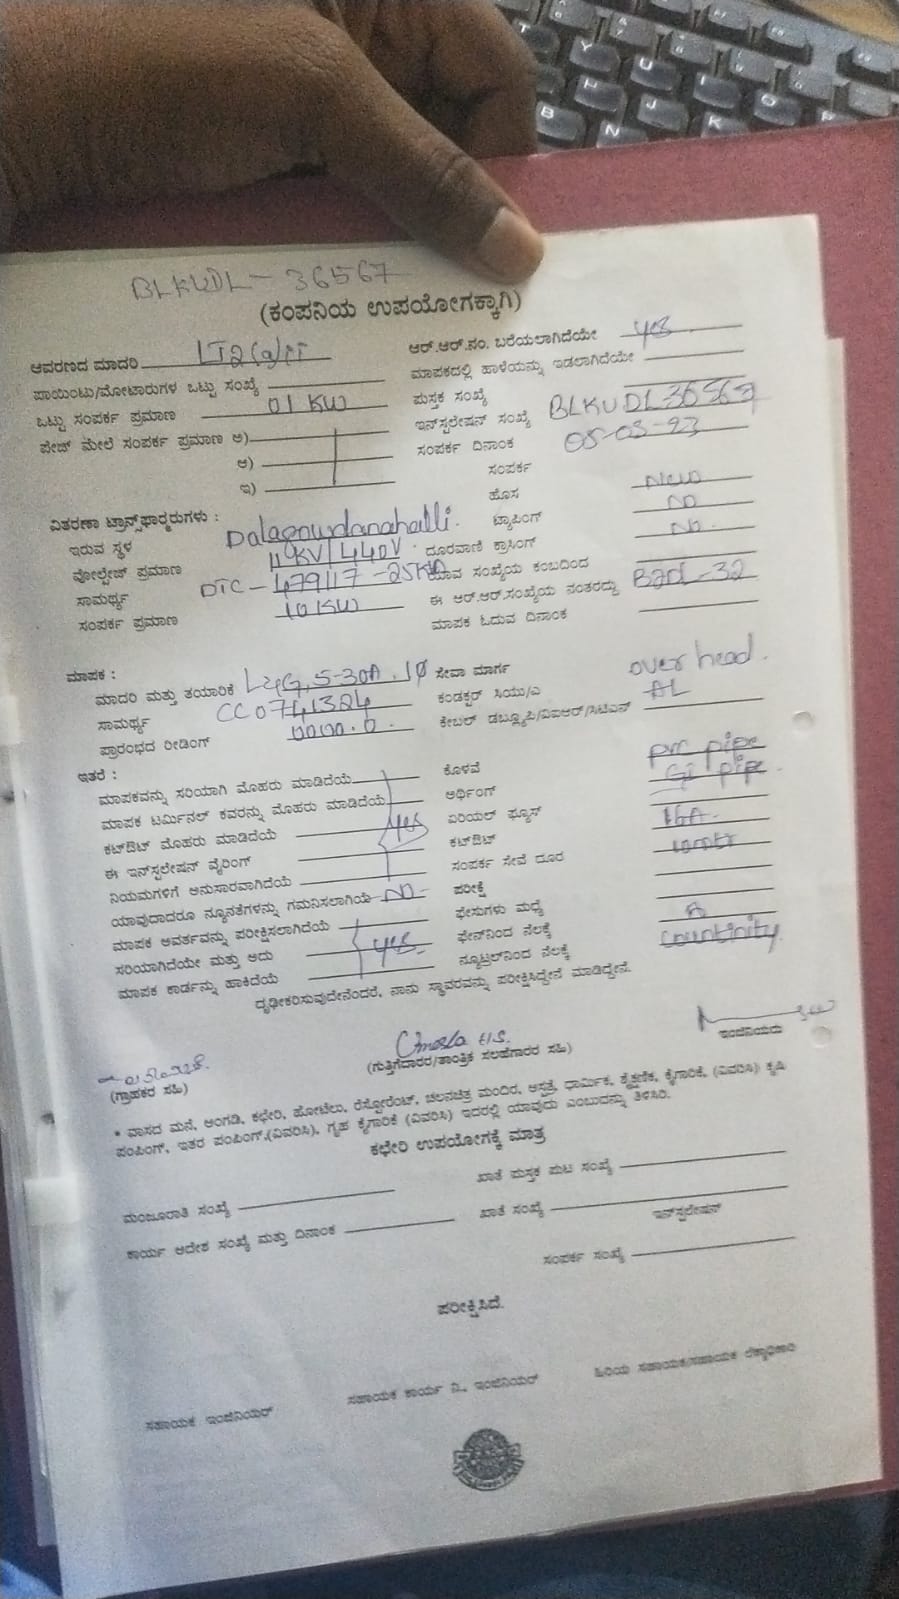 BLKUDL-36567
(ಕಂಪನಿಯ ಉಪಯೋಗಕ್ಕಾಗಿ)
ಆವರಣದ ಮಾದರಿ LT2(a)
ಆರ್.ಆರ್.ನಂ. ಬರೆಯಲಾಗಿದೆಯೇ yes
ಪಾಯಿಂಟು/ಮೋಟಾರುಗಳ ಒಟ್ಟು ಸಂಖ್ಯೆ
ಮಾಪಕದಲ್ಲಿ ಹಾಳೆಯನ್ನು ಇಡಲಾಗಿದೆಯೇ
ಒಟ್ಟು ಸಂಪರ್ಕ ಪ್ರಮಾಣ 01 KW
ಪುಸ್ತಕ ಸಂಖ್ಯೆ
ಪೇಜ್ ಮೇಲೆ ಸಂಪರ್ಕ ಪ್ರಮಾಣ ಅ)
ಇನ್‌ಸ್ಟಲೇಷನ್ ಸಂಖ್ಯೆ BLKUDL36567
ಆ)
ಸಂಪರ್ಕ ದಿನಾಂಕ 05-03-23
ಇ)
ಸಂಪರ್ಕ
ವಿತರಣಾ ಟ್ರಾನ್ಸ್‌ಫಾರ್ಮರುಗಳು :
ಹೊಸ New
ಇರುವ ಸ್ಥಳ Dalagowdanahalli.
ಟ್ಯಾಪಿಂಗ್ NO
ವೋಲ್ಟೇಜ್ ಪ್ರಮಾಣ 11KV/440V
ದೂರವಾಣಿ ಕ್ರಾಸಿಂಗ್ NO.
ಸಾಮರ್ಥ್ಯ DTC-479117-25KVA
ಯಾವ ಸಂಖ್ಯೆಯ ಕಂಬದಿಂದ
ಸಂಪರ್ಕ ಪ್ರಮಾಣ 10 KW
ಈ ಆರ್.ಆರ್.ಸಂಖ್ಯೆಯ ನಂತರದ್ದು BJDL-32
ಮಾಪಕ ಓದುವ ದಿನಾಂಕ
ಮಾಪಕ :
ಮಾದರಿ ಮತ್ತು ತಯಾರಿಕೆ L&G, 5-30A, 1Ø
ಸೇವಾ ಮಾರ್ಗ over head.
ಸಾಮರ್ಥ್ಯ CC0741324
ಕಂಡಕ್ಟರ್ ಸಿಯು/ಎ AL
ಪ್ರಾರಂಭದ ರೀಡಿಂಗ್ 0000.0.
ಕೇಬಲ್ ಡಬ್ಲ್ಯೂಪಿ/ವಿಐಆರ್/ಸಿಟಿಎಸ್
ಇತರೆ :
ಮಾಪಕವನ್ನು ಸರಿಯಾಗಿ ಮೊಹರು ಮಾಡಿದೆಯೆ
ಕೊಳವೆ pvc pipe
ಮಾಪಕ ಟರ್ಮಿನಲ್ ಕವರನ್ನು ಮೊಹರು ಮಾಡಿದೆಯೆ
ಅರ್ಥಿಂಗ್ GI pipe.
ಕಟ್‌ಔಟ್ ಮೊಹರು ಮಾಡಿದೆಯೆ yes
ಏರಿಯಲ್ ಫ್ಯೂಸ್
ಈ ಇನ್‌ಸ್ಟಲೇಷನ್ ವೈರಿಂಗ್
ಕಟ್‌ಔಟ್ 16A.
ನಿಯಮಗಳಿಗೆ ಅನುಸಾರವಾಗಿದೆಯೆ
ಸಂಪರ್ಕ ಸೇವೆ ದೂರ
ಯಾವುದಾದರೂ ನ್ಯೂನತೆಗಳನ್ನು ಗಮನಿಸಲಾಗಿಯೆ NO-
ಪರೀಕ್ಷೆ
ಮಾಪಕ ಆವರ್ತವನ್ನು ಪರೀಕ್ಷಿಸಲಾಗಿದೆಯೆ
ಫೇಸುಗಳು ಮಧ್ಯೆ
ಸರಿಯಾಗಿದೆಯೇ ಮತ್ತು ಅದು yes.
ಫೇಸ್‌ನಿಂದ ನೆಲಕ್ಕೆ
ಮಾಪಕ ಕಾರ್ಡನ್ನು ಹಾಕಿದೆಯೆ
ನ್ಯೂಟ್ರಲ್‌ನಿಂದ ನೆಲಕ್ಕೆ countinity.
ದೃಢೀಕರಿಸುವುದೇನೆಂದರೆ, ನಾನು ಸ್ಥಾವರವನ್ನು ಪರೀಕ್ಷಿಸಿದ್ದೇನೆ ಮಾಡಿದ್ದೇನೆ.
(ಗ್ರಾಹಕರ ಸಹಿ)
(ಗುತ್ತಿಗೆದಾರರ/ತಾಂತ್ರಿಕ ಸಲಹೆಗಾರರ ಸಹಿ)
ಇಂಜಿನಿಯರು
* ವಾಸದ ಮನೆ, ಅಂಗಡಿ, ಕಛೇರಿ, ಹೋಟೆಲು, ರೆಸ್ಟೋರೆಂಟ್, ಚಲನಚಿತ್ರ ಮಂದಿರ, ಆಸ್ಪತ್ರೆ, ಧಾರ್ಮಿಕ, ಶೈಕ್ಷಣಿಕ, ಕೈಗಾರಿಕೆ, (ವಿವರಿಸಿ) ಕೃಷಿ
ಪಂಪಿಂಗ್, ಇತರ ಪಂಪಿಂಗ್,(ವಿವರಿಸಿ), ಗೃಹ ಕೈಗಾರಿಕೆ (ವಿವರಿಸಿ) ಇದರಲ್ಲಿ ಯಾವುದು ಎಂಬುದನ್ನು ತಿಳಿಸಿರಿ.
ಕಛೇರಿ ಉಪಯೋಗಕ್ಕೆ ಮಾತ್ರ
ಮಂಜೂರಾತಿ ಸಂಖ್ಯೆ
ಖಾತೆ ಪುಸ್ತಕ ಪುಟ ಸಂಖ್ಯೆ
ಕಾರ್ಯ ಆದೇಶ ಸಂಖ್ಯೆ ಮತ್ತು ದಿನಾಂಕ
ಖಾತೆ ಸಂಖ್ಯೆ
ಇನ್‌ಸ್ಟಲೇಷನ್
ಸಂಪರ್ಕ ಸಂಖ್ಯೆ
ಪರೀಕ್ಷಿಸಿದೆ.
ಸಹಾಯಕ ಇಂಜಿನಿಯರ್
ಸಹಾಯಕ ಕಾರ್ಯ ನಿ., ಇಂಜಿನಿಯರ್
ಹಿರಿಯ ಸಹಾಯಕ/ಸಹಾಯಕ ಲೆಕ್ಕಾಧಿಕಾರಿ